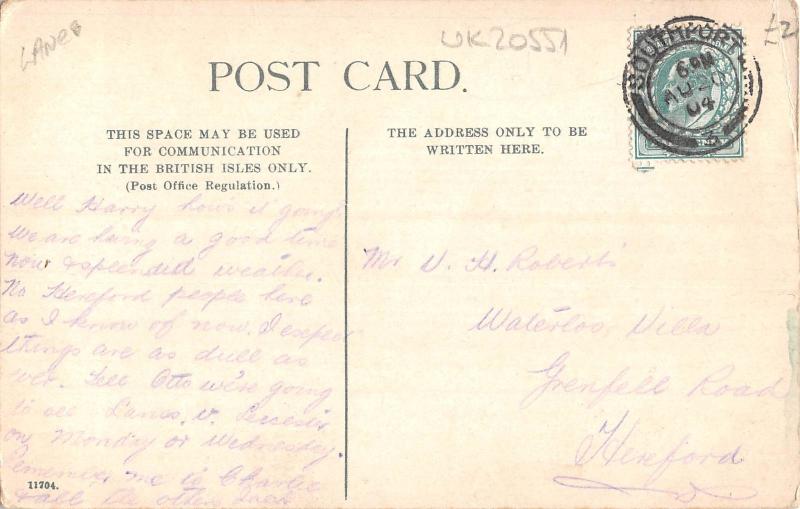 LANCS
UK20551
£2
POST CARD.
SOUTHPORT
6 PM
AU 20
04
3
THIS SPACE MAY BE USED
FOR COMMUNICATION
IN THE BRITISH ISLES ONLY.
(Post Office Regulation.)
THE ADDRESS ONLY TO BE
WRITTEN HERE.
Well Harry how's it going
We are having a good time
now & splendid weather.
No Hereford people here
as I know of now. I expect
things are as dull as
ever. Tell Otto we're going
to see Lancs. v. Leicester
on Monday or Wednesday.
Remember me to Charlie
& all the other
11704.
Mr V. H. Roberts
Waterloo Villa
Grenfell Road
Hereford